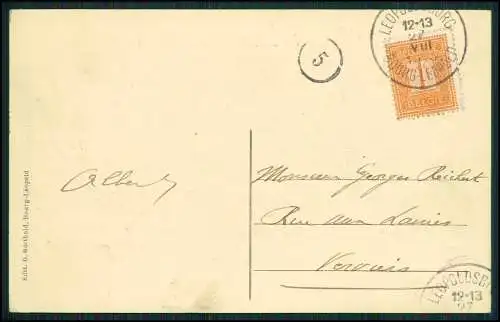 LEOPOLDSBURG
12-13
27
VIII
(BOURG-LEOPOLD)
5
1
BELGIE
Albert
Monsieur Georges Reichert
Rue aux Laines
Verviers
LEOPOLDSB
12-13
27
Edit. G. Bourg-Léopold